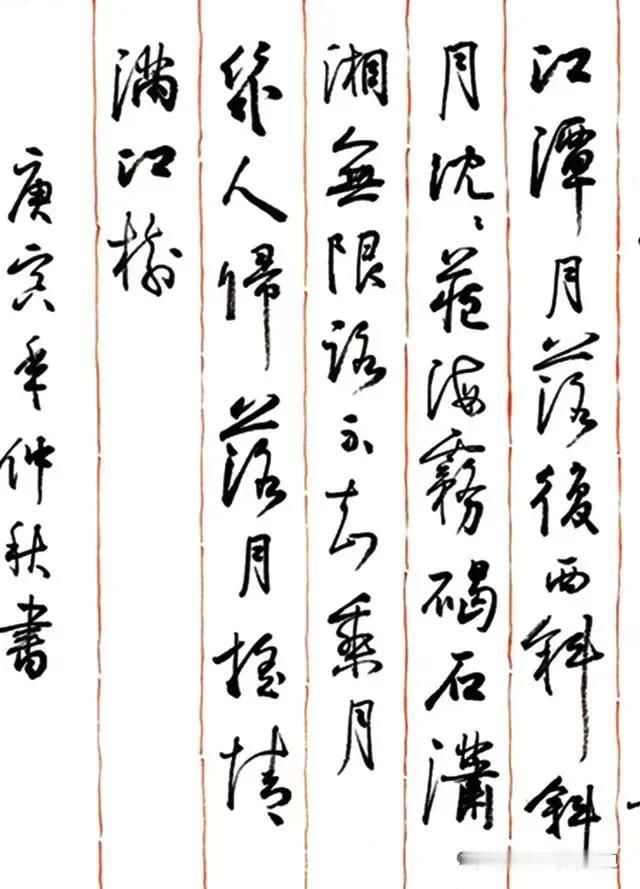 江潭月落復西斜斜
月沈々藏海霧碣石瀟
湘無限路不知乘月
幾人歸落月搖情
滿江樹
庚寅年仲秋書